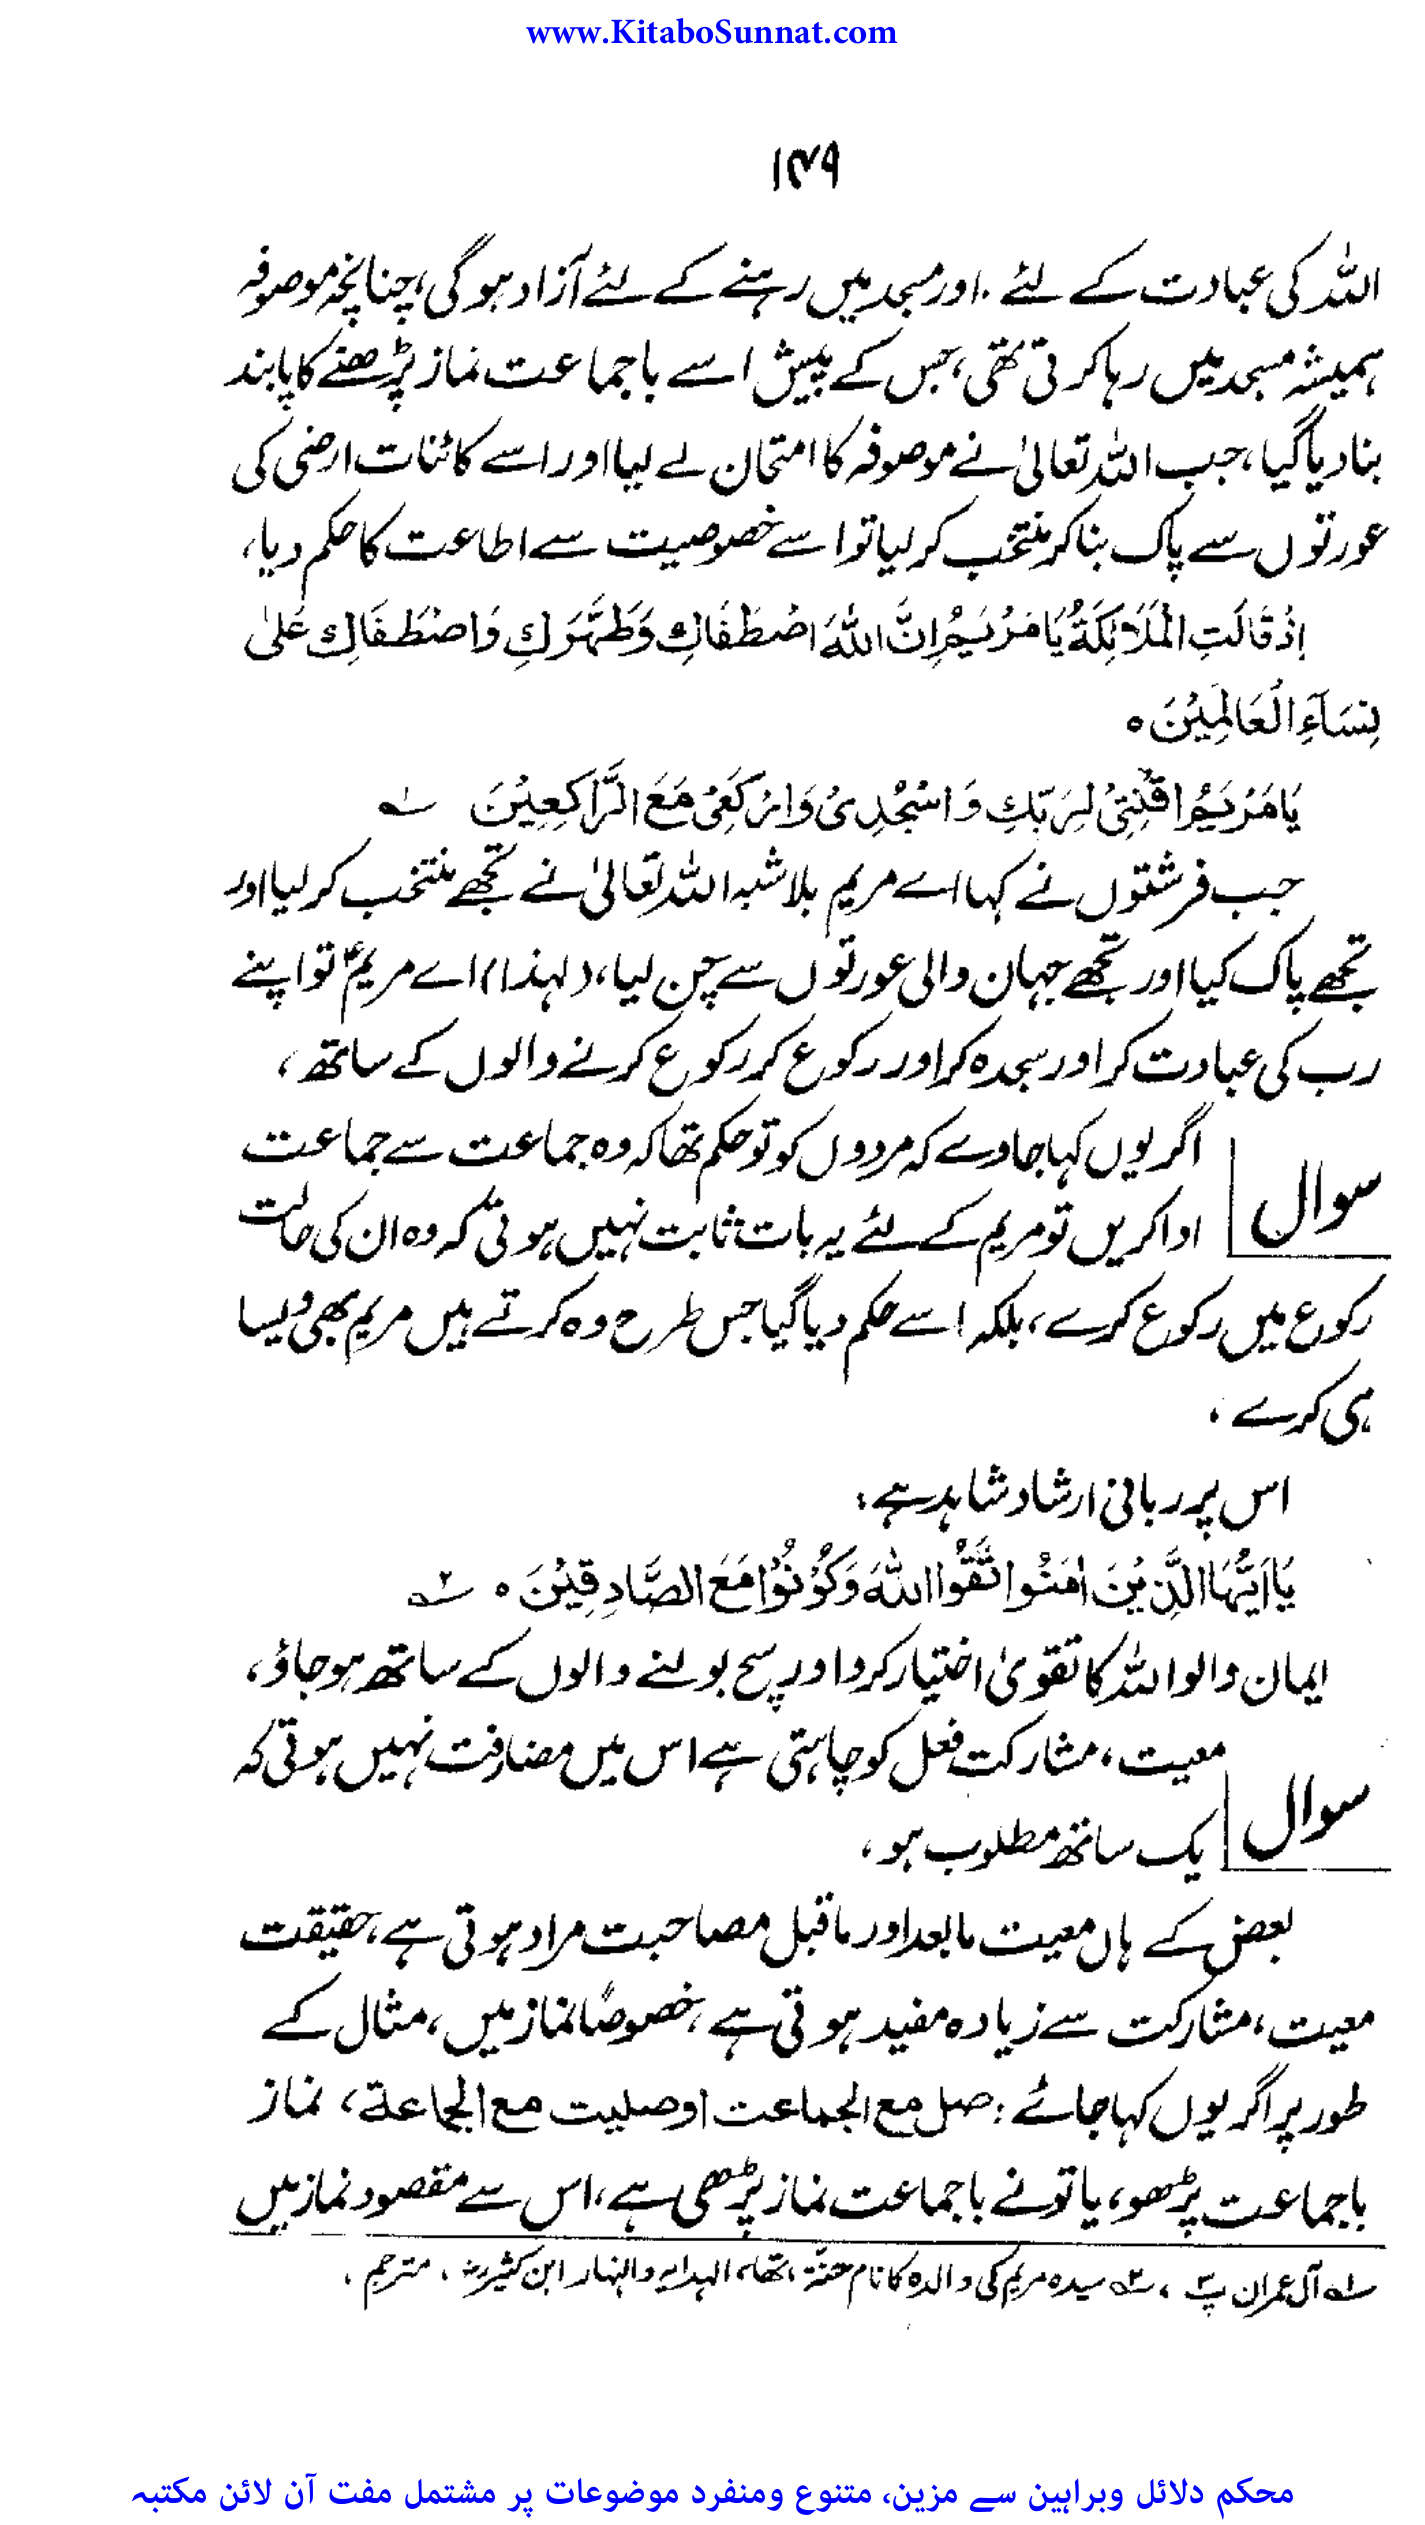 www.KitaboSunnat.com
۱۴۹
اللہ کی عبادت کے لئے . اور مسجد میں رہنے کے لئے آزاد ہو گی، چنانچہ موصوفہ
ہمیشہ مسجد میں رہا کرتی تھی، جس کے پیش اسے باجماعت نماز پڑھنے کا پابند
بنا دیا گیا، جب اللہ تعالیٰ نے موصوفہ کا امتحان لے لیا اور اسے کائنات ارضی کی
عورتوں سے پاک بنا کر منتخب کر لیا تو اسے خصوصیت سے اطاعت کا حکم دیا،
اِذْ قَالَتِ الْمَلَائِكَةُ يَا مَرْيَمُ اِنَّ اللّٰهَ اصْطَفَاكِ وَطَهَّرَكِ وَاصْطَفَاكِ عَلىٰ
نِسَآءِ الْعَالَمِيْنَ ه
يَا مَرْيَمُ اقْنُتِيْ لِرَبِّكِ وَاسْجُدِىْ وَارْكَعِىْ مَعَ الرَّاكِعِيْنَ ؎۱
جب فرشتوں نے کہا اے مریم بلاشبہ اللہ تعالیٰ نے تجھے منتخب کر لیا اور
تجھے پاک کیا اور تجھے جہان والی عورتوں سے چن لیا، (لہذا) اے مریمؑ تو اپنے
رب کی عبادت کر اور سجدہ کر اور رکوع کر رکوع کرنے والوں کے ساتھ،
سوال اگر یوں کہا جاوے کہ مردوں کو تو حکم تھا کہ وہ جماعت سے جماعت
ادا کریں تو مریم کے لئے یہ بات ثابت نہیں ہوتی کہ وہ ان کی حالت
رکوع میں رکوع کرے، بلکہ اسے حکم دیا گیا جس طرح وہ کرتے ہیں مریم بھی ویسا
ہی کرے ،
اس پر ربانی ارشاد شاہد ہے:
يَا اَيُّهَا الَّذِيْنَ اٰمَنُوا اتَّقُوا اللّٰهَ وَكُوْنُوْا مَعَ الصَّادِقِيْنَ ه ؎۲
ایمان والو اللہ کا تقویٰ اختیار کرو اور سچ بولنے والوں کے ساتھ ہو جاؤ،
سوال معیت، مشارکت فعل کو چاہتی ہے اس میں مضارفت نہیں ہوتی کہ
یک ساتھ مطلوب ہو،
بعض کے ہاں معیت مابعد اور ماقبل مصاحبت مراد ہوتی ہے، حقیقت
معیت، مشارکت سے زیادہ مفید ہوتی ہے، خصوصًا نماز میں، مثال کے
طور پر اگر یوں کہا جائے: صل مع الجماعت او صلیت مع الجماعة، نماز
باجماعت پڑھو، یا تو نے باجماعت نماز پڑھی ہے، اس سے مقصود نماز میں
؎۱ آل عمران پ ۳ ، ؎۲ سیدہ مریم کی والدہ کا نام حنّۃ تھا، البدایہ والنہایہ ابن کثیرؒ ، مترجم .
محکم دلائل وبراہین سے مزین، متنوع ومنفرد موضوعات پر مشتمل مفت آن لائن مکتبہ